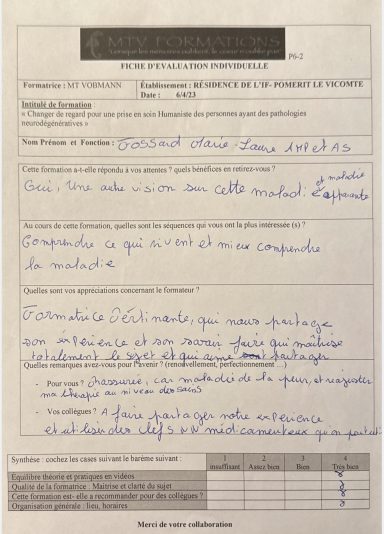 MTV FORMATIONS
"Lorsque les mémoires oublient, le coeur n'oublie pas"
P6-2
FICHE D'EVALUATION INDIVIDUELLE
Formatrice : MT VOBMANN
Établissement : RÉSIDENCE DE L'IF- POMERIT LE VICOMTE
Date : 6/4/23
Intitulé de formation :
« Changer de regard pour une prise en soin Humaniste des personnes ayant des pathologies
neurodégénératives »
Nom Prénom et Fonction : Fossard Marie-Laure AMP et AS
Cette formation a-t-elle répondu à vos attentes ? quels bénéfices en retirez-vous ?
Oui, Une autre vision sur cette maladie et maladie apparente
Au cours de cette formation, quelles sont les séquences qui vous ont la plus intéressée (s) ?
Comprendre ce qui vivent et mieux comprendre
la maladie
Quelles sont vos appréciations concernant le formateur ?
Formatrice Pértinante, qui nous partage
son éxpérience et son savoir faire qui maîtrise
totalement le sujet et qui aime partager
Quelles remarques avez-vous pour l'avenir ? (renouvellement, perfectionnement ...)
- Pour vous ? Rassurée, car maladie de la peur, et réajuster
ma thérapie au niveau des soins
- Vos collègues ? A faire partager notre expérience
et utiliser des clefs NN médicamenteux qu'on
Synthèse : cochez les cases suivant le barème suivant :
1 insuffisant
2 Assez bien
3 Bien
4 Très bien
Equilibre théorie et pratiques en vidéos
Qualité de la formatrice : Maitrise et clarté du sujet
Cette formation est- elle a recommander pour des collègues ?
Organisation générale : lieu, horaires
Merci de votre collaboration